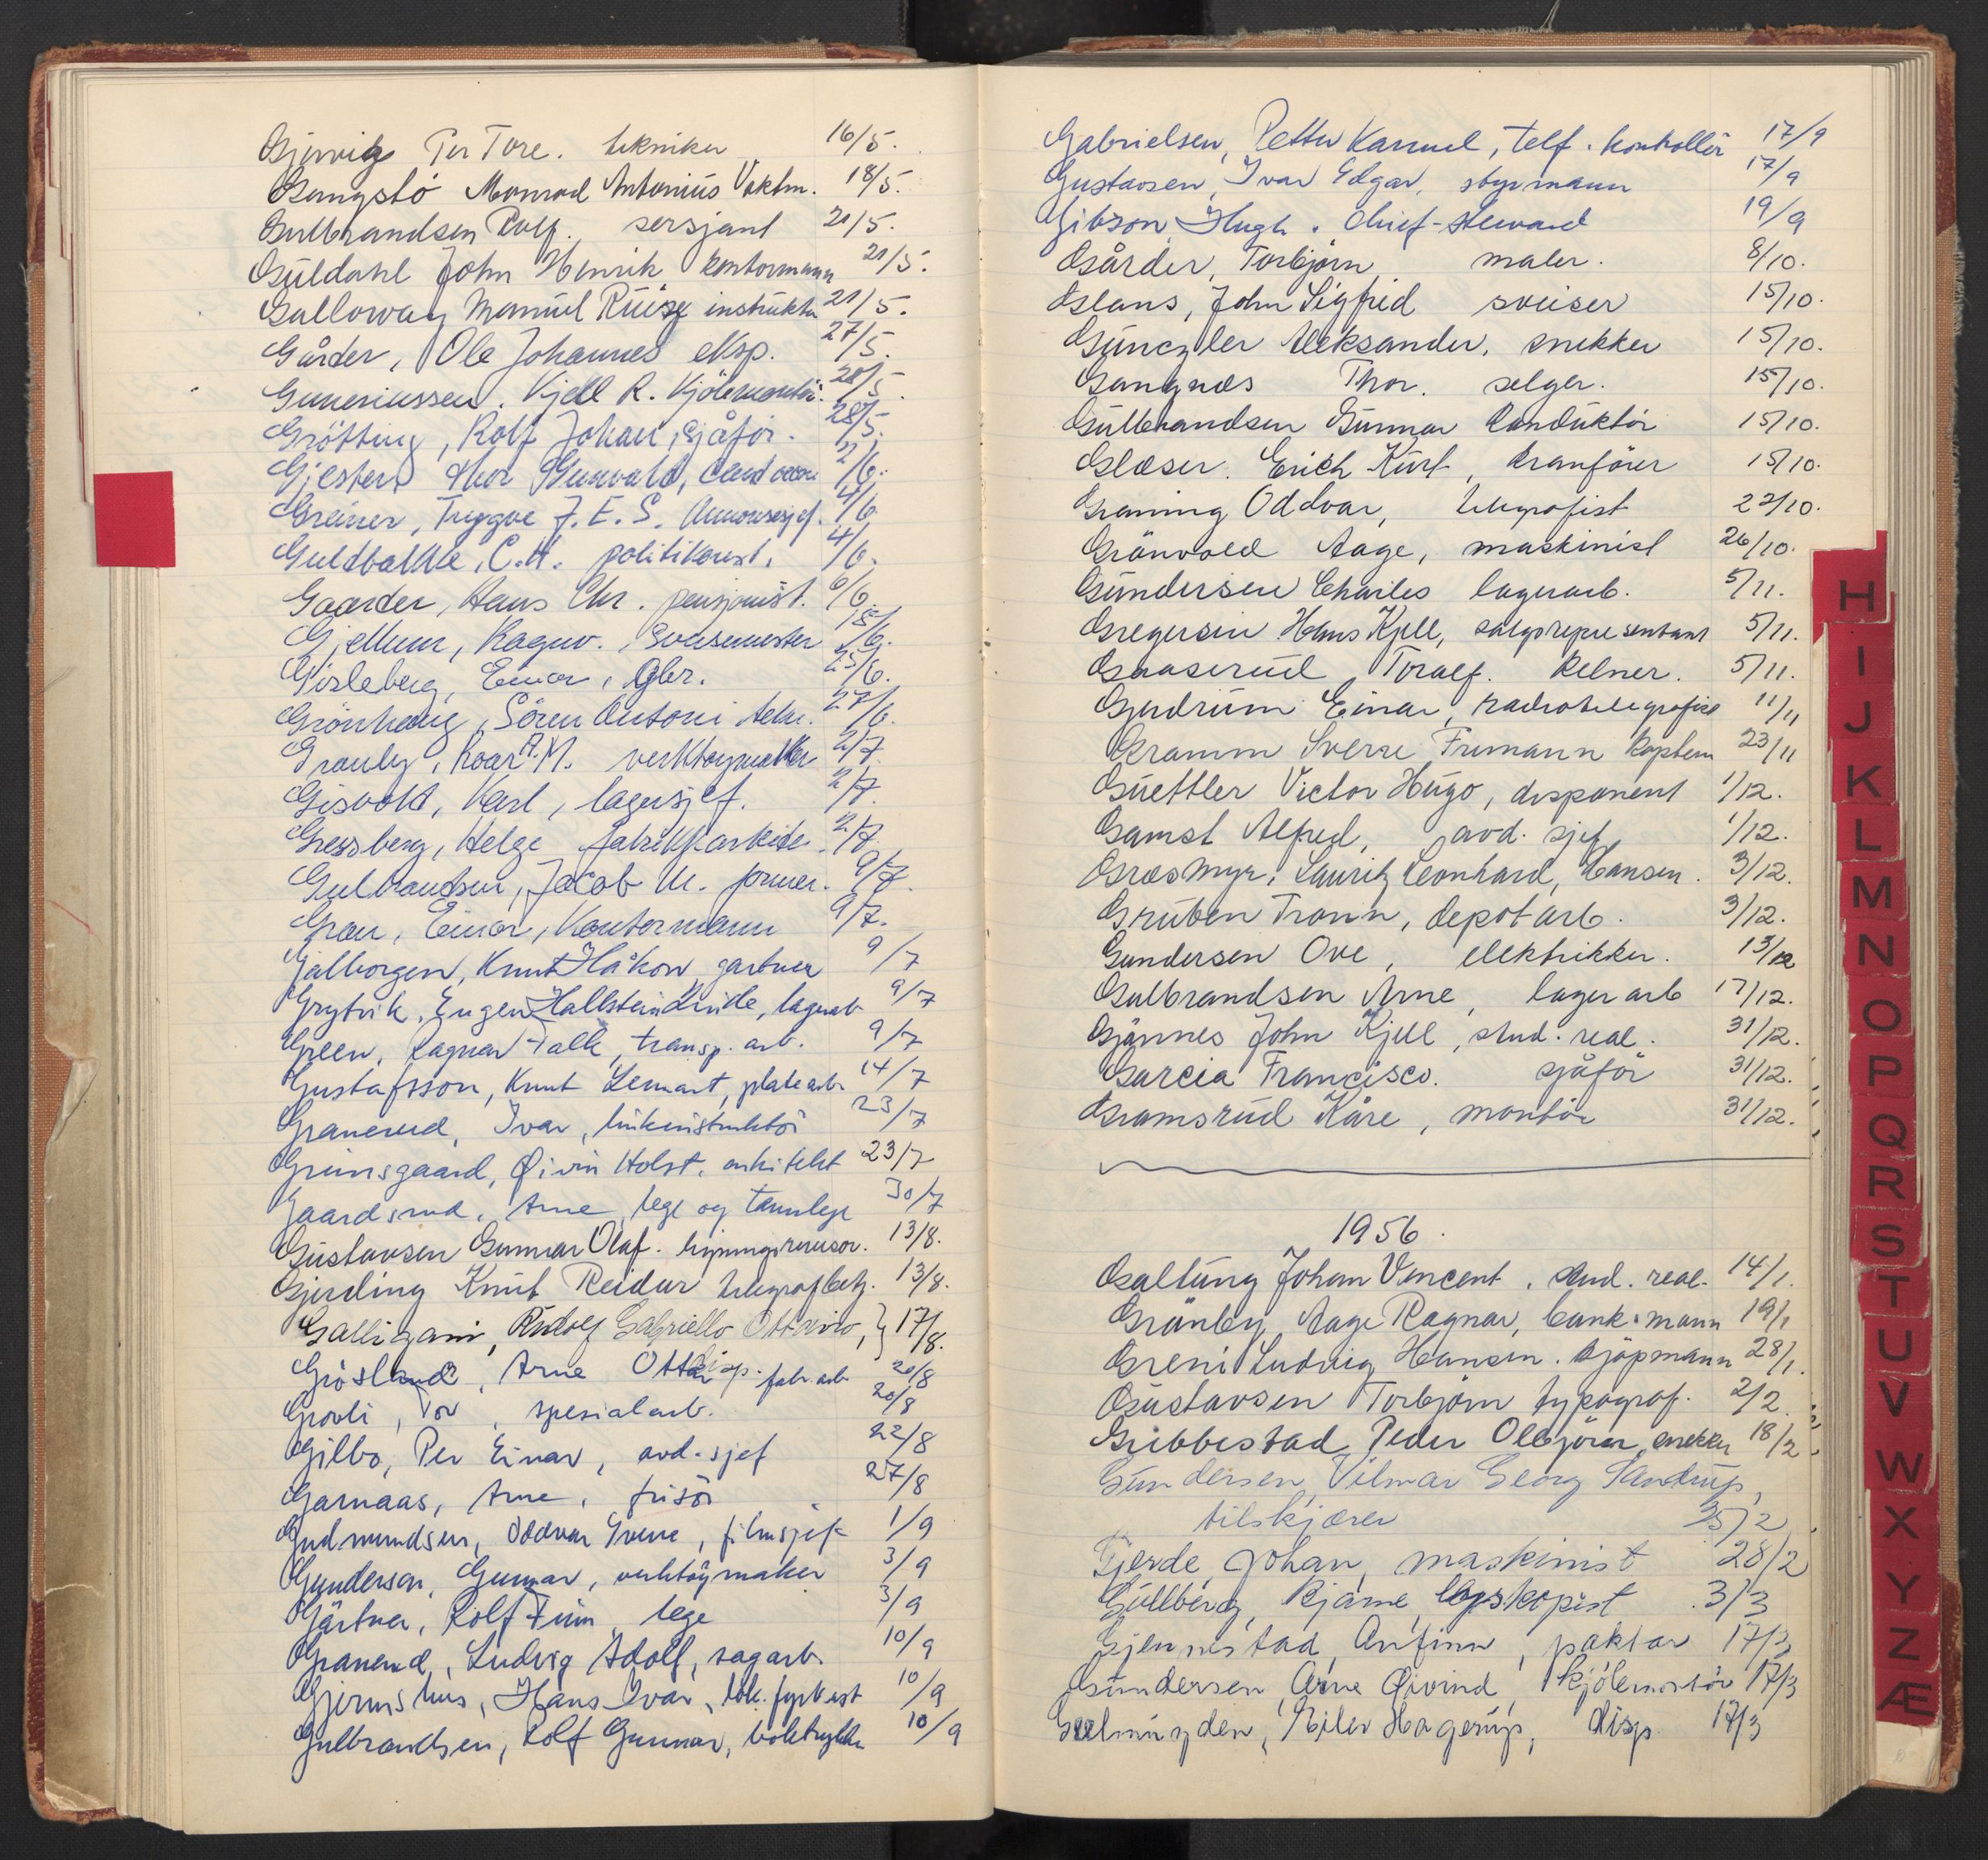 Gjervig Per Tore. tekniker 16/5.
Gangstö Monrad Antonius Vaktm. 18/5.
Gulbrandsen Rolf. sersjant 21/5.
Guldahl John Henrik kontormann 21/5.
Galloway Manuel Ruisz instruktør 21/5.
Gårder, Ole Johannes eksp. 27/5.
Guneriussen. Kjell R. Kjölemontör. 28/5.
Grötting, Rolf Johan, sjåför. 28/5.
Gjesten Thor Gunvald, cand oecon 2/6.
Greiner, Tryggve J. E. S. Annonsesjef. 4/6
Guldbakke, C.A. politikonst. 4/6.
Gaarder, Hans Chr. pensjonist. 6/6.
Gjellum, Ragnv. 18/6.
Gisleberg, Einar, Gbr. 25/6.
Grönhaug, Sören Antoni 27/6.
Granby, Roar A.M. verktøymaker 2/7.
Gisvold, Karl, lagersjef. 2/7.
Gressberg, Helge fabrikkarbeider 2/7.
Gulbrandsen, Jacob M. former. 9/7.
Gran, Einar, Kontormann 9/7.
Gjalborgen, Knut Håkon, gartner 9/7
Grytvik, Eugen Hallstein lagerarb 9/7
Green, Ragnar Falk, transp. arb. 9/7
Gustafsson, Knut Lennart, platearb. 14/7
Granerud, Ivar, linkinstruktör 23/7
Grimsgaard, Øivin Holst. arkitekt 23/7
Gaardsrud, Arne lege og tannlege 30/7
Gustavsen Gunnar Olaf. ligningsrevisor. 13/8.
Gjerding Knut Reidar telegrafbetj. 13/8.
Galligani, Rudolf Gabriello Ottavio, } 17/8.
disp.
Grösland, Arne Ottar fabr. arb 20/8
Grovli, Tor, spesialarb. 20/8
Gilbo, Per Einar, avd. sjef 22/8
Garnaas, Arne, frisör 27/8
Gudmundsen, Oddvar Sverre, filmsjef 1/9
Gundersen, Gunnar, verktöymaker 3/9
Gärtner, Rolf Finn lege 3/9
Granerud, Ludvig Adolf, sagarb. 10/9
Gjermshus, Hans Ivar, lok. fyrbøt 10/9
Gulbrandsen, Rolf Gunnar, boktrykker 10/9
Gabrielsen, Petter Kornel, telf. kontrollör 17/9
Gustavsen, Ivar Edgar, styrmann 17/9
Gibson, Hugh. chief-steward 19/9
Gårder, Torbjörn, maler. 8/10.
Glans, John Sigfrid sveiser 15/10.
Günczler Aleksander, snekker 15/10.
Gangnæs Thor. selger. 15/10.
Gulbrandsen Gunnar konduktör 15/10.
Glæser. Erich Kurt, kranförer 15/10.
Graning Oddvar, telegrafist 22/10.
Grönvold Aage, maskinist 26/10.
Gundersen Charles lagerarb. 5/11.
Gregersen Hans Kjell, salgsrepresentant 5/11.
Gaaserud, Toralf. kelner. 5/11.
Gjudrum Einar, radiotelegrafist 11/11
Gramm Sverre Frimann kaptein 23/11
Guettler Victor Hugo, disponent 1/12.
Gamst Alfred, avd. sjef 1/12.
Græsmyr, Lauritz Leonhard, Hansen. 3/12.
Gruben Tronn, depotarb. 3/12.
Gundersen Ove, elektrikker. 13/12
Gulbrandsen Arne, lagerarb 17/12.
Gjönnes John Kjell, stud. real. 31/12.
Garcia Francisco. sjåför 31/12.
Gramsrud Kåre, montör 31/12.
1956.
Galtung Johan Vincent. stud. real. 14/1.
Granby Aage Ragnar, bank. mann 19/1
Greni Ludvig Hansen. kjöpmann 28/1.
Gustavsen Torbjörn typograf. 2/2.
Gribbestad, Peder Olbjörn, snekker 18/2.
Gundersen, Vilmar Georg Sandrup,
tilskjærer 25/2
Gjerde, Johan, maskinist 28/2
Gullberg, Bjarne lyskopist 3/3
Gjennestad, Anfinn, poktor 17/3
Gundersen, Arne Øivind, kjölemontör 17/3
Gulmyden, Eiler Hagerup, disp. 17/3
H
I
J
K
L
M
N
O
P
Q
R
S
T
U
V
W
X
Y
Z
Æ